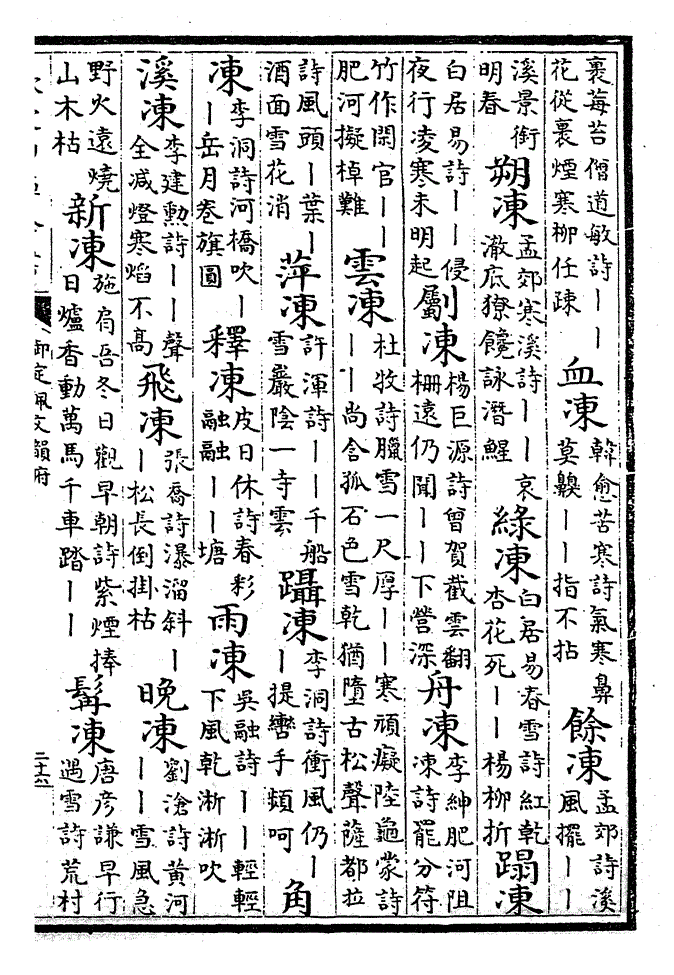 裹莓苔僧道敏詩丨丨花從裏煙寒柳任疎 血凍 韓愈苦寒詩氣寒鼻莫齅丨丨指不拈 餘凍 孟郊詩溪風擺丨丨
溪景銜明春 朔凍 孟郊寒溪詩丨丨哀澈底獠饞詠潛鯹 綠凍 白居易春雪詩紅乾杏花死丨丨楊柳折 蹋凍
白居易詩丨丨侵夜行凌寒未明起 劚凍 楊巨源詩曾賀截雲翻柵遠仍聞丨丨下營深 舟凍 李紳肥河阻凍詩罷分符
竹作閑官丨丨肥河擬棹難 雲凍 杜牧詩臘雪一尺厚丨丨寒頑癡陸龜蒙詩丨丨尚含孤石色雪乾猶墮古松聲薩都拉
詩風頭丨葉丨酒面雪花消 萍凍 許渾詩丨丨千船雪巖陰一寺雲 躡凍 李洞詩衝風仍丨丨提轡手頻呵 角
凍 李洞詩河橋吹丨丨岳月卷旗圓 釋凍 皮日休詩春彩融融丨丨塘 雨凍 吳融詩丨丨輕輕下風乾淅淅吹
溪凍 李建勲詩丨丨聲全減燈寒焰不高 飛凍 張喬詩瀑溜斜丨丨松長倒掛枯 晚凍 劉滄詩黄河丨丨雪風急
野火遠燒山木枯 新凍 施肩吾冬日觀早朝詩紫煙捧日爐香動萬馬千車踏丨丨 髯凍 唐彦謙早行遇雪詩荒村
御定佩文韻府
二十六